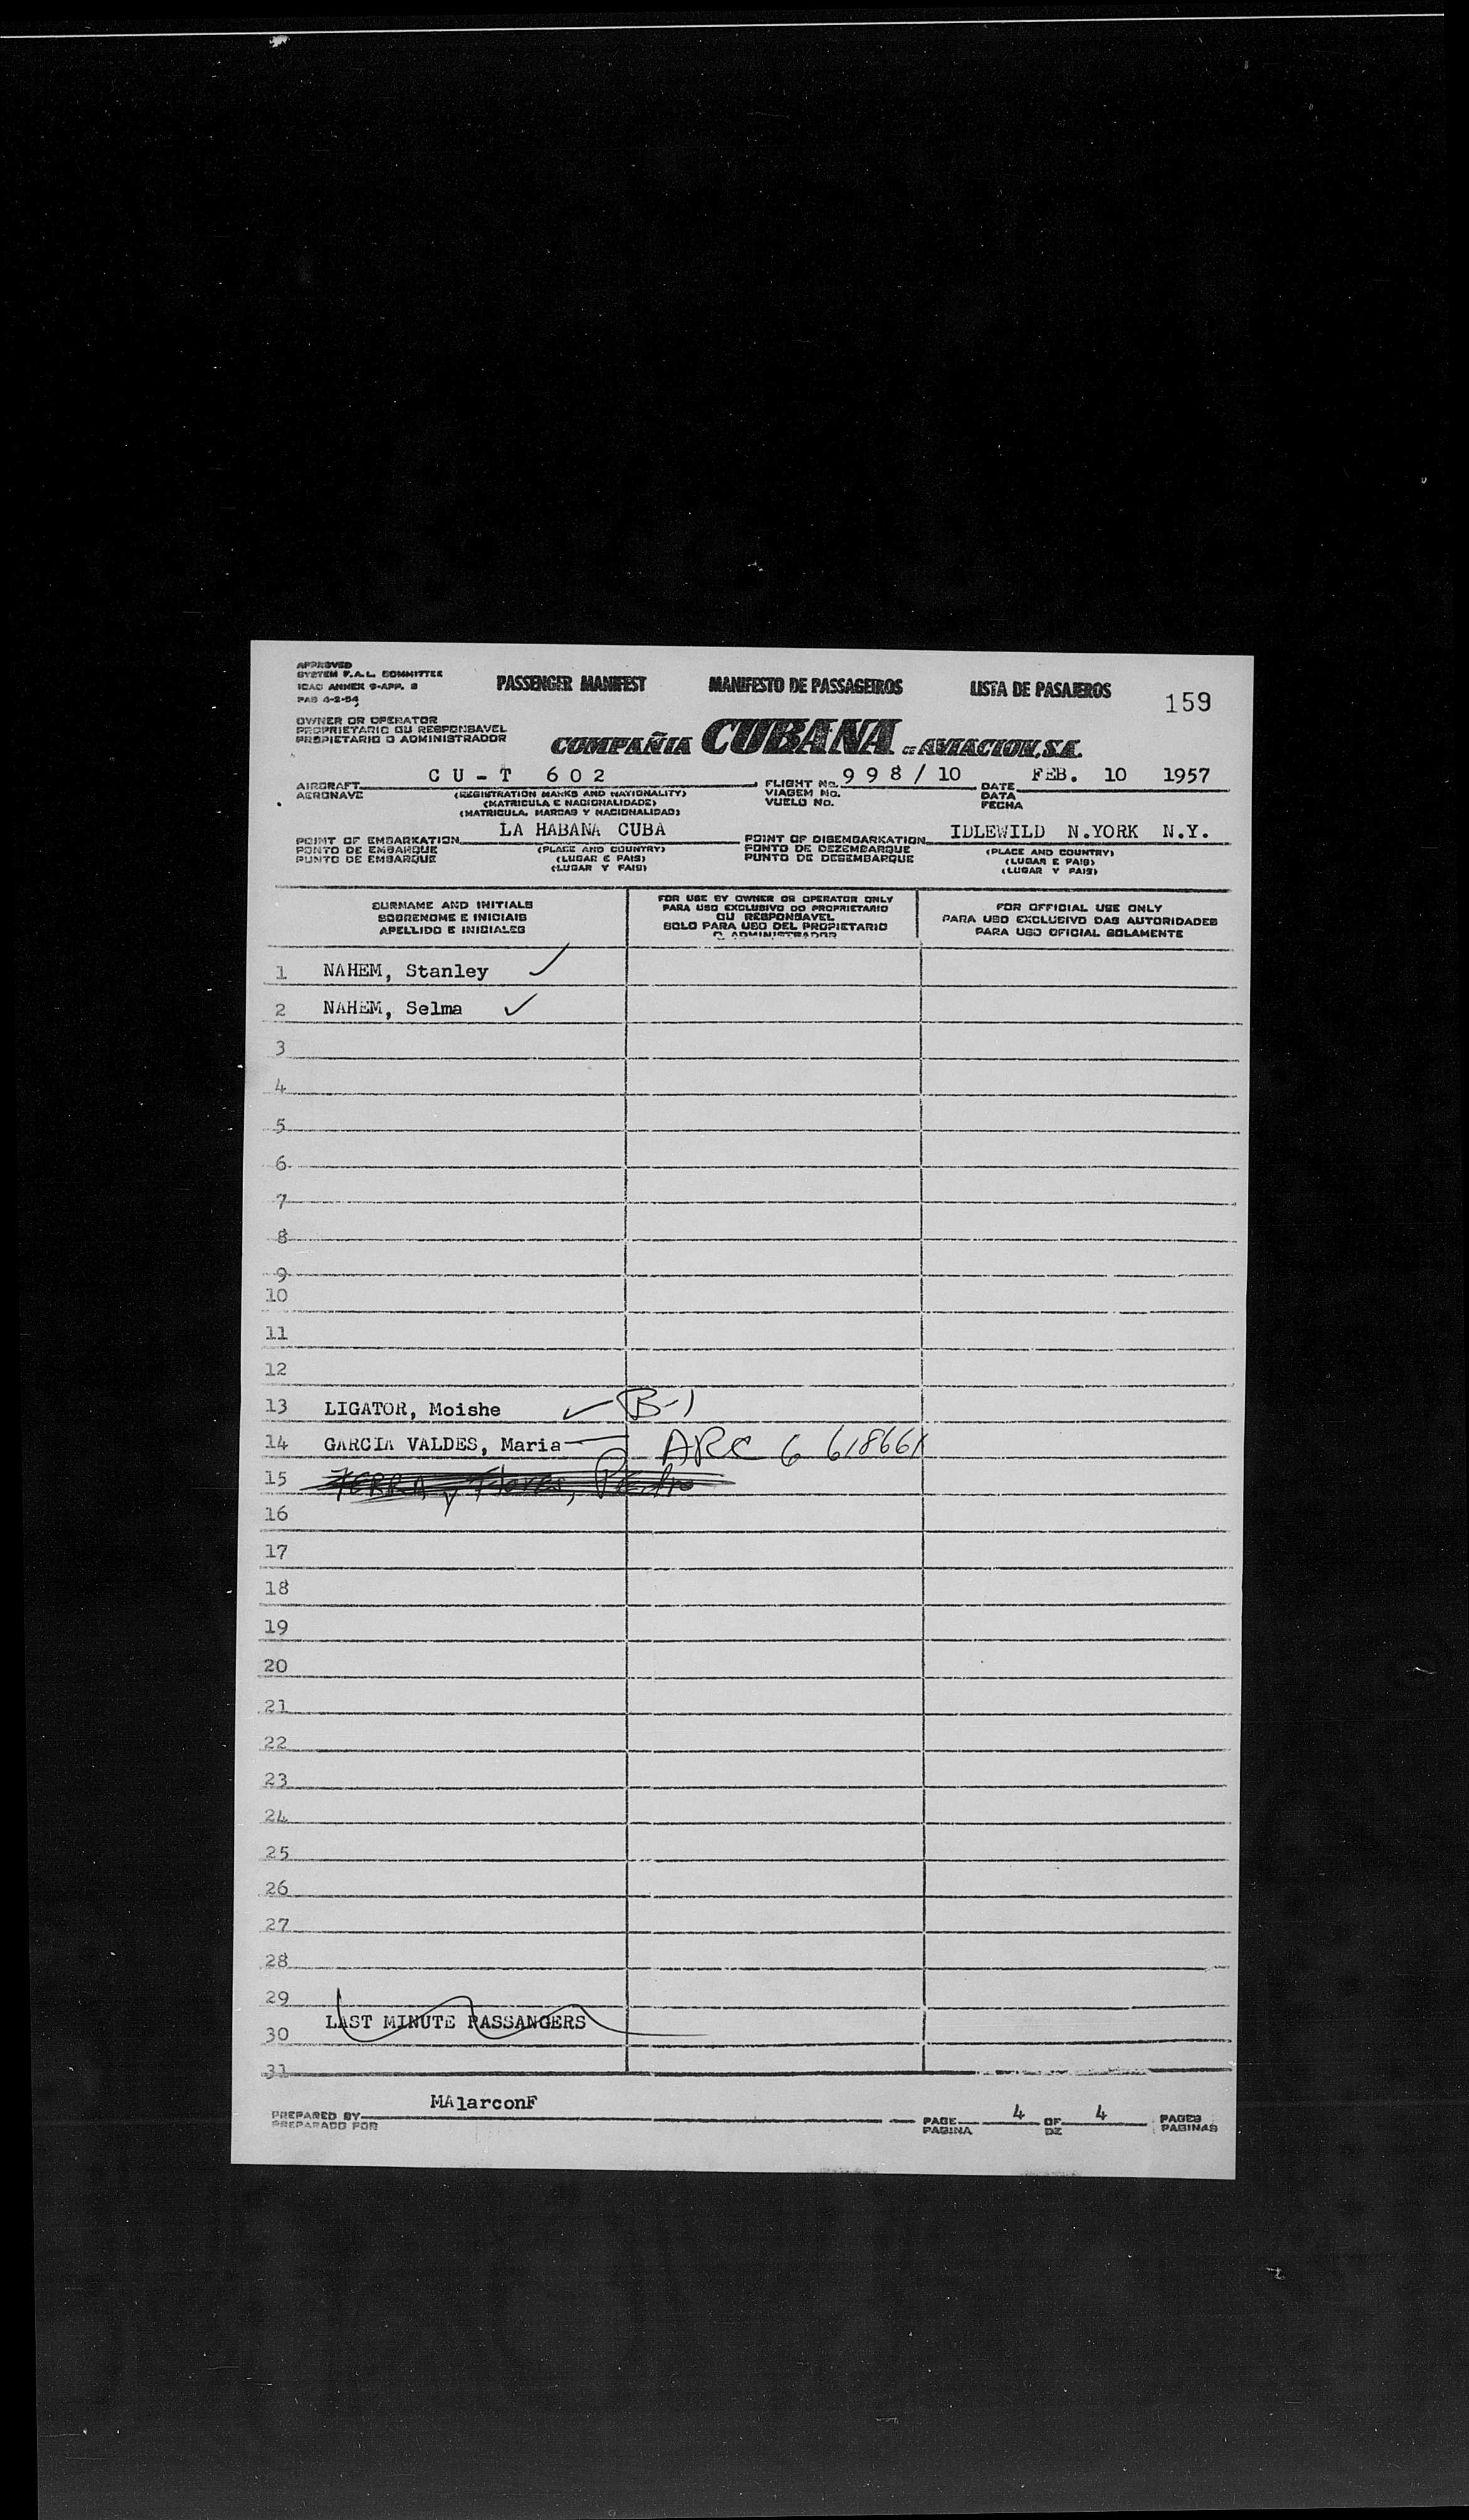 APPROVED
SYSTEM F.A.L. COMMITTEE
ICAO ANNEX 9-APP. 5
PAB 4-2-54
PASSENGER MANIFEST MANIFESTO DE PASSAGEIROS LISTA DE PASAJEROS 159
OWNER OR OPERATOR
PROPRIETARIO OU RESPONSAVEL
PROPIETARIO O ADMINISTRADOR
COMPAÑIA CUBANA DE AVIACION, S.A.
AIRCRAFT C U - T 6 0 2 FLIGHT No. 9 9 8 / 10 DATE FEB. 10 1957
AERONAVE (REGISTRATION MARKS AND NATIONALITY) VIAGEM No. DATA
(MATRICULA E NACIONALIDADE) VUELO No. FECHA
(MATRICULA, MARCAS Y NACIONALIDAD)
POINT OF EMBARKATION LA HABANA CUBA POINT OF DISEMBARKATION IDLEWILD N.YORK N.Y.
PONTO DE EMBARQUE (PLACE AND COUNTRY) PONTO DE DEZEMBARQUE (PLACE AND COUNTRY)
PUNTO DE EMBARQUE (LUGAR E PAIS) PUNTO DE DESEMBARQUE (LUGAR E PAIS)
(LUGAR Y PAIS) (LUGAR Y PAIS)
SURNAME AND INITIALS
SOBRENOME E INICIAIS
APELLIDO E INICIALES
FOR USE BY OWNER OR OPERATOR ONLY
PARA USO EXCLUSIVO DO PROPRIETARIO
OU RESPONSAVEL
SOLO PARA USO DEL PROPIETARIO
O ADMINISTRADOR
FOR OFFICIAL USE ONLY
PARA USO EXCLUSIVO DAS AUTORIDADES
PARA USO OFICIAL SOLAMENTE
1 NAHEM, Stanley ✓
2 NAHEM, Selma ✓
3
4
5
6
7
8
9
10
11
12
13 LIGATOR, Moishe ✓ B-1
14 GARCIA VALDES, Maria ARC 6 618661
15 y Flores, Pedro
16
17
18
19
20
21
22
23
24
25
26
27
28
29
LAST MINUTE PASSANGERS
30
31
PREPARED BY MAlarconF PAGE 4 OF 4 PAGES
PREPARADO POR PAGINA DE PAGINAS